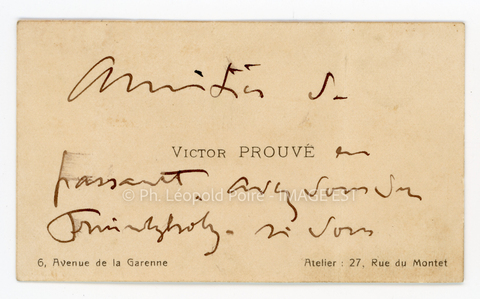 Amitiés de
VICTOR PROUVÉ en
passant. avez vous du
si vous
© Ph. Léopold Poiré - IMAGE'EST
6, Avenue de la Garenne
Atelier : 27, Rue du Montet